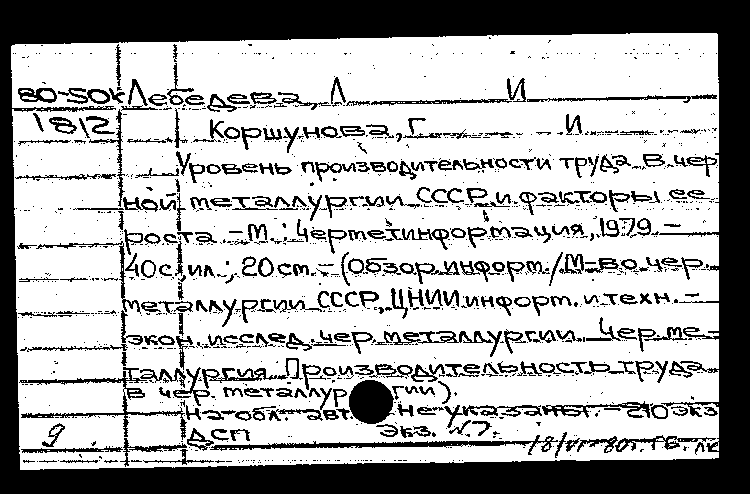 80-50к Лебедева, Л И
1812 Коршунова, Г. И
Уровень производительности труда в чер
ной металлургии СССР и факторы ее
роста. – М.: Черметинформация, 1979. –
40с., ил.; 20 ст. – (Обзор. информ./М-во чер.
металлургии СССР, ЦНИИ информ. и техн. –
экон. исслед. чер. металлургии. Чер. ме –
таллургия. Производительность труда
в чер. металлургии).
На обл. авт. не указаны. – 210 экз
9 ДСП Экз. №7.
18/VI-80г. ГБ. ЛК